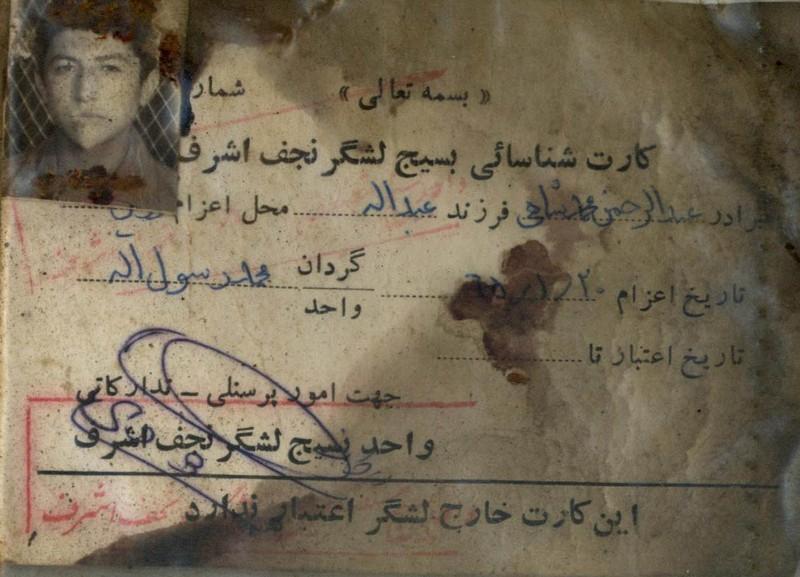 « بسمه تعالی »
شمار
کارت شناسائی بسیج لشگر نجف اشرف
برادر عبدالرحمن فرزند عبداله محل اعزام
تاریخ اعزام ۶۵/۱/۲۰ گردان محمد رسول اله
واحد
تاریخ اعتبار تا
جهت امور پرسنلی ـ تدارکاتی
واحد بسیج لشگر نجف اشرف
این کارت خارج لشگر اعتبار ندارد
نجف اشرف